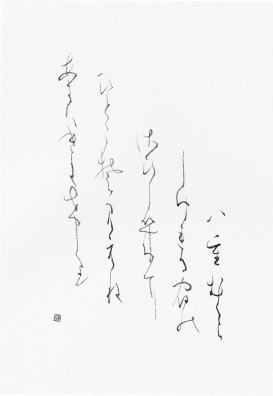 八重むぐら
しげれる宿の
さびしきに
ひとこそ見えね
あきは来にけり